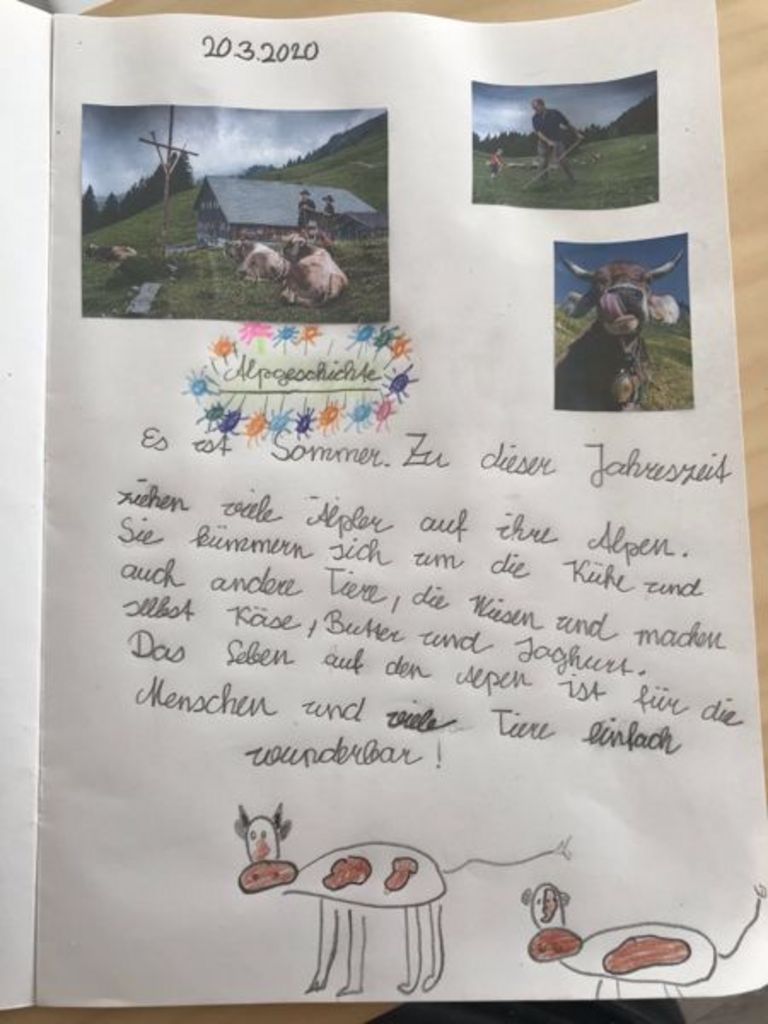 20.3.2020
Alpgeschichte
Es ist Sommer. Zu dieser Jahreszeit
ziehen viele Älpler auf ihre Alpen.
Sie kümmern sich um die Kühe und
auch andere Tiere, die Wiesen und machen
selbst Käse, Butter und Joghurt.
Das Leben auf den Alpen ist für die
Menschen und viele Tiere einfach
wunderbar!